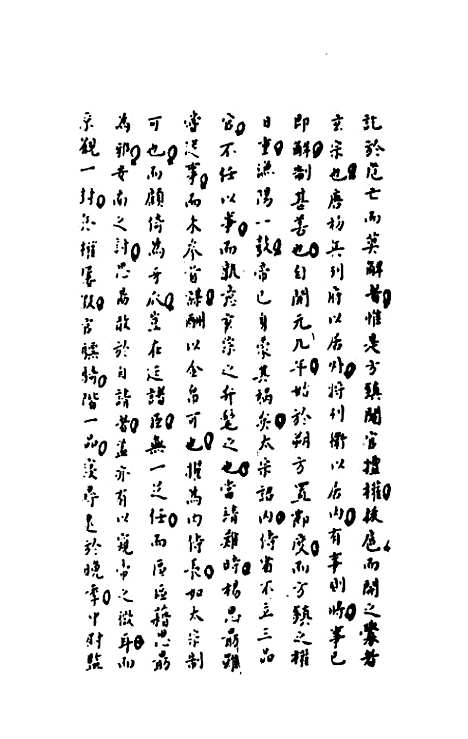 訖於危亡而莫解者惟是方鎮閹官擅權後扈而開之釁者
玄宗也唐初兵列府以居外將列衛以居內有事則將事已
即解制甚善也自開元九年始於朔方置節度而方鎮之權
日重漁陽一鼓帝已身蒙其禍矣太宗詔內侍省不立三品
官不任以事而孰意玄宗之弁髦之也當請難時楊思勗雖
嘗從事而未參首謀酬以金帛可也擢為內侍長如太宗制
可也而顧倚為牙爪豈在廷諸臣無一足任而區區藉思勗
為邪安南之討思勗敢於自請者蓋亦有以窺帝之微耳而
京觀一封恩權屢假官驃騎階一品寖尋迄於晚季中尉監